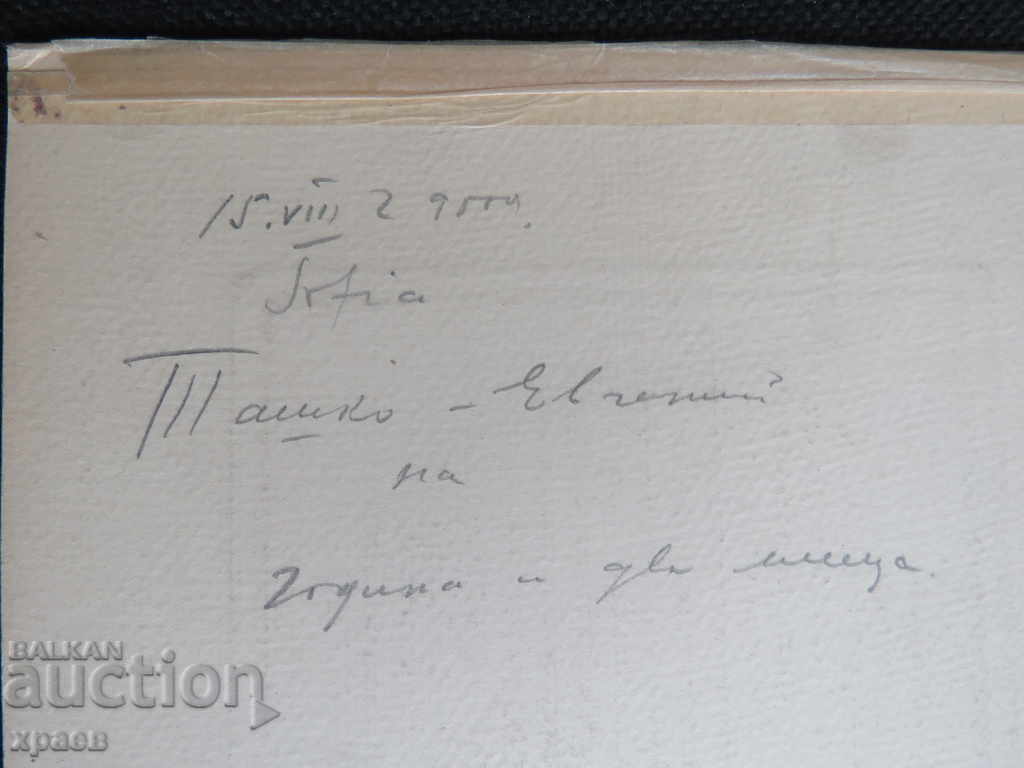 15.VIII
София
Ташко - Евгений
на
година и два месеца.
BALKAN
auction
храев